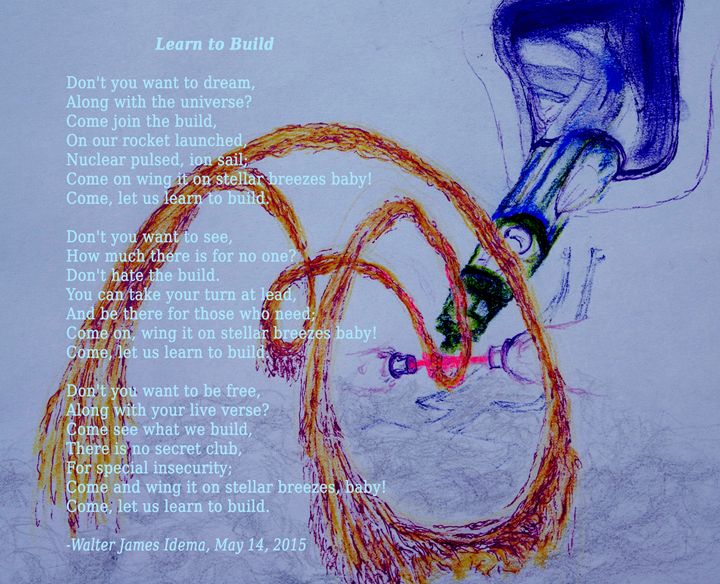 Learn to Build
Don't you want to dream,
Along with the universe?
Come join the build,
On our rocket launched,
Nuclear pulsed, ion sail;
Come on wing it on stellar breezes baby!
Come, let us learn to build.
Don't you want to see,
How much there is for no one?
Don't hate the build.
You can take your turn at lead,
And be there for those who need;
Come on, wing it on stellar breezes baby!
Come, let us learn to build.
Don't you want to be free,
Along with your live verse?
Come see what we build,
There is no secret club,
For special insecurity;
Come and wing it on stellar breezes, baby!
Come; let us learn to build.
-Walter James Idema, May 14, 2015